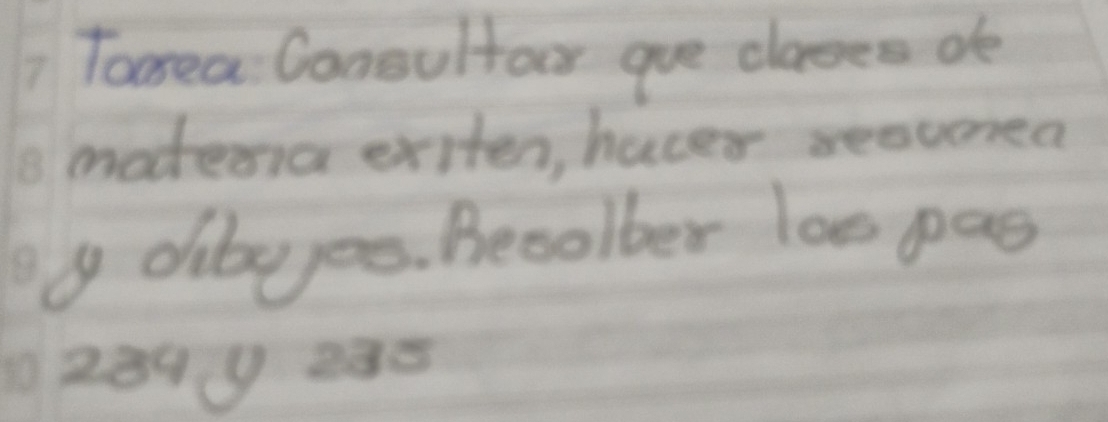 7 Tarea: Consultar que clases de
8 materia exiten, hacer resumen
9 y dibujos. Resolber las pag
10 234 y 235